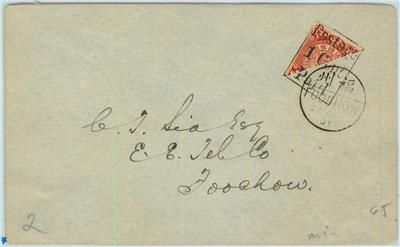 Postage
1 C
Paid
FOOCHOW
C. T. Sia Esq
E. E. Tel Co
Foochow.
2
65
min